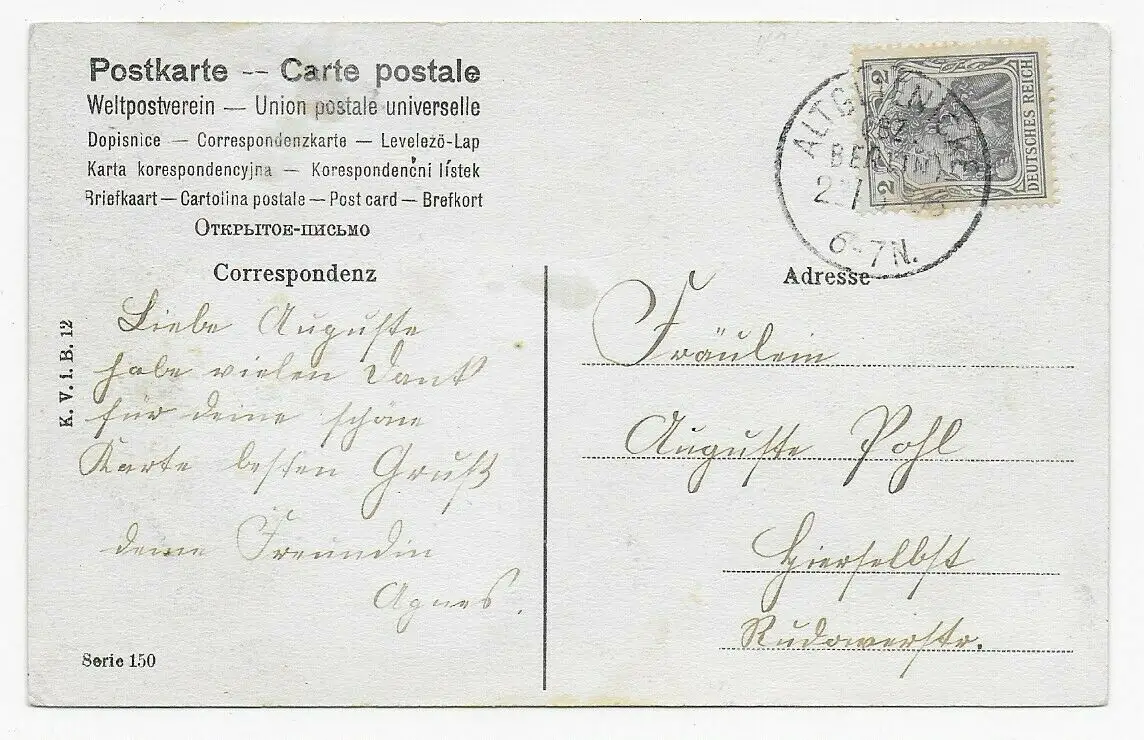 Postkarte -- Carte postale
Weltpostverein — Union postale universelle
Dopisnice — Correspondenzkarte — Levelező-Lap
Karta korespondencyjna — Korespondenční lístek
Briefkaart — Cartolina postale — Post card — Brefkort
Открытое-письмо
Correspondenz
Liebe Auguste
habe vielen Dank
für deine schöne
Karte besten Gruß
deine Freundin
Agnes.
K. V. i. B. 12
Serie 150
2 2
DEUTSCHES REICH
ALTGLIENICKE
BERLIN
6-7N.
Adresse
Fräulein
Auguste Pohl
Hierselbst
Rudowerstr.